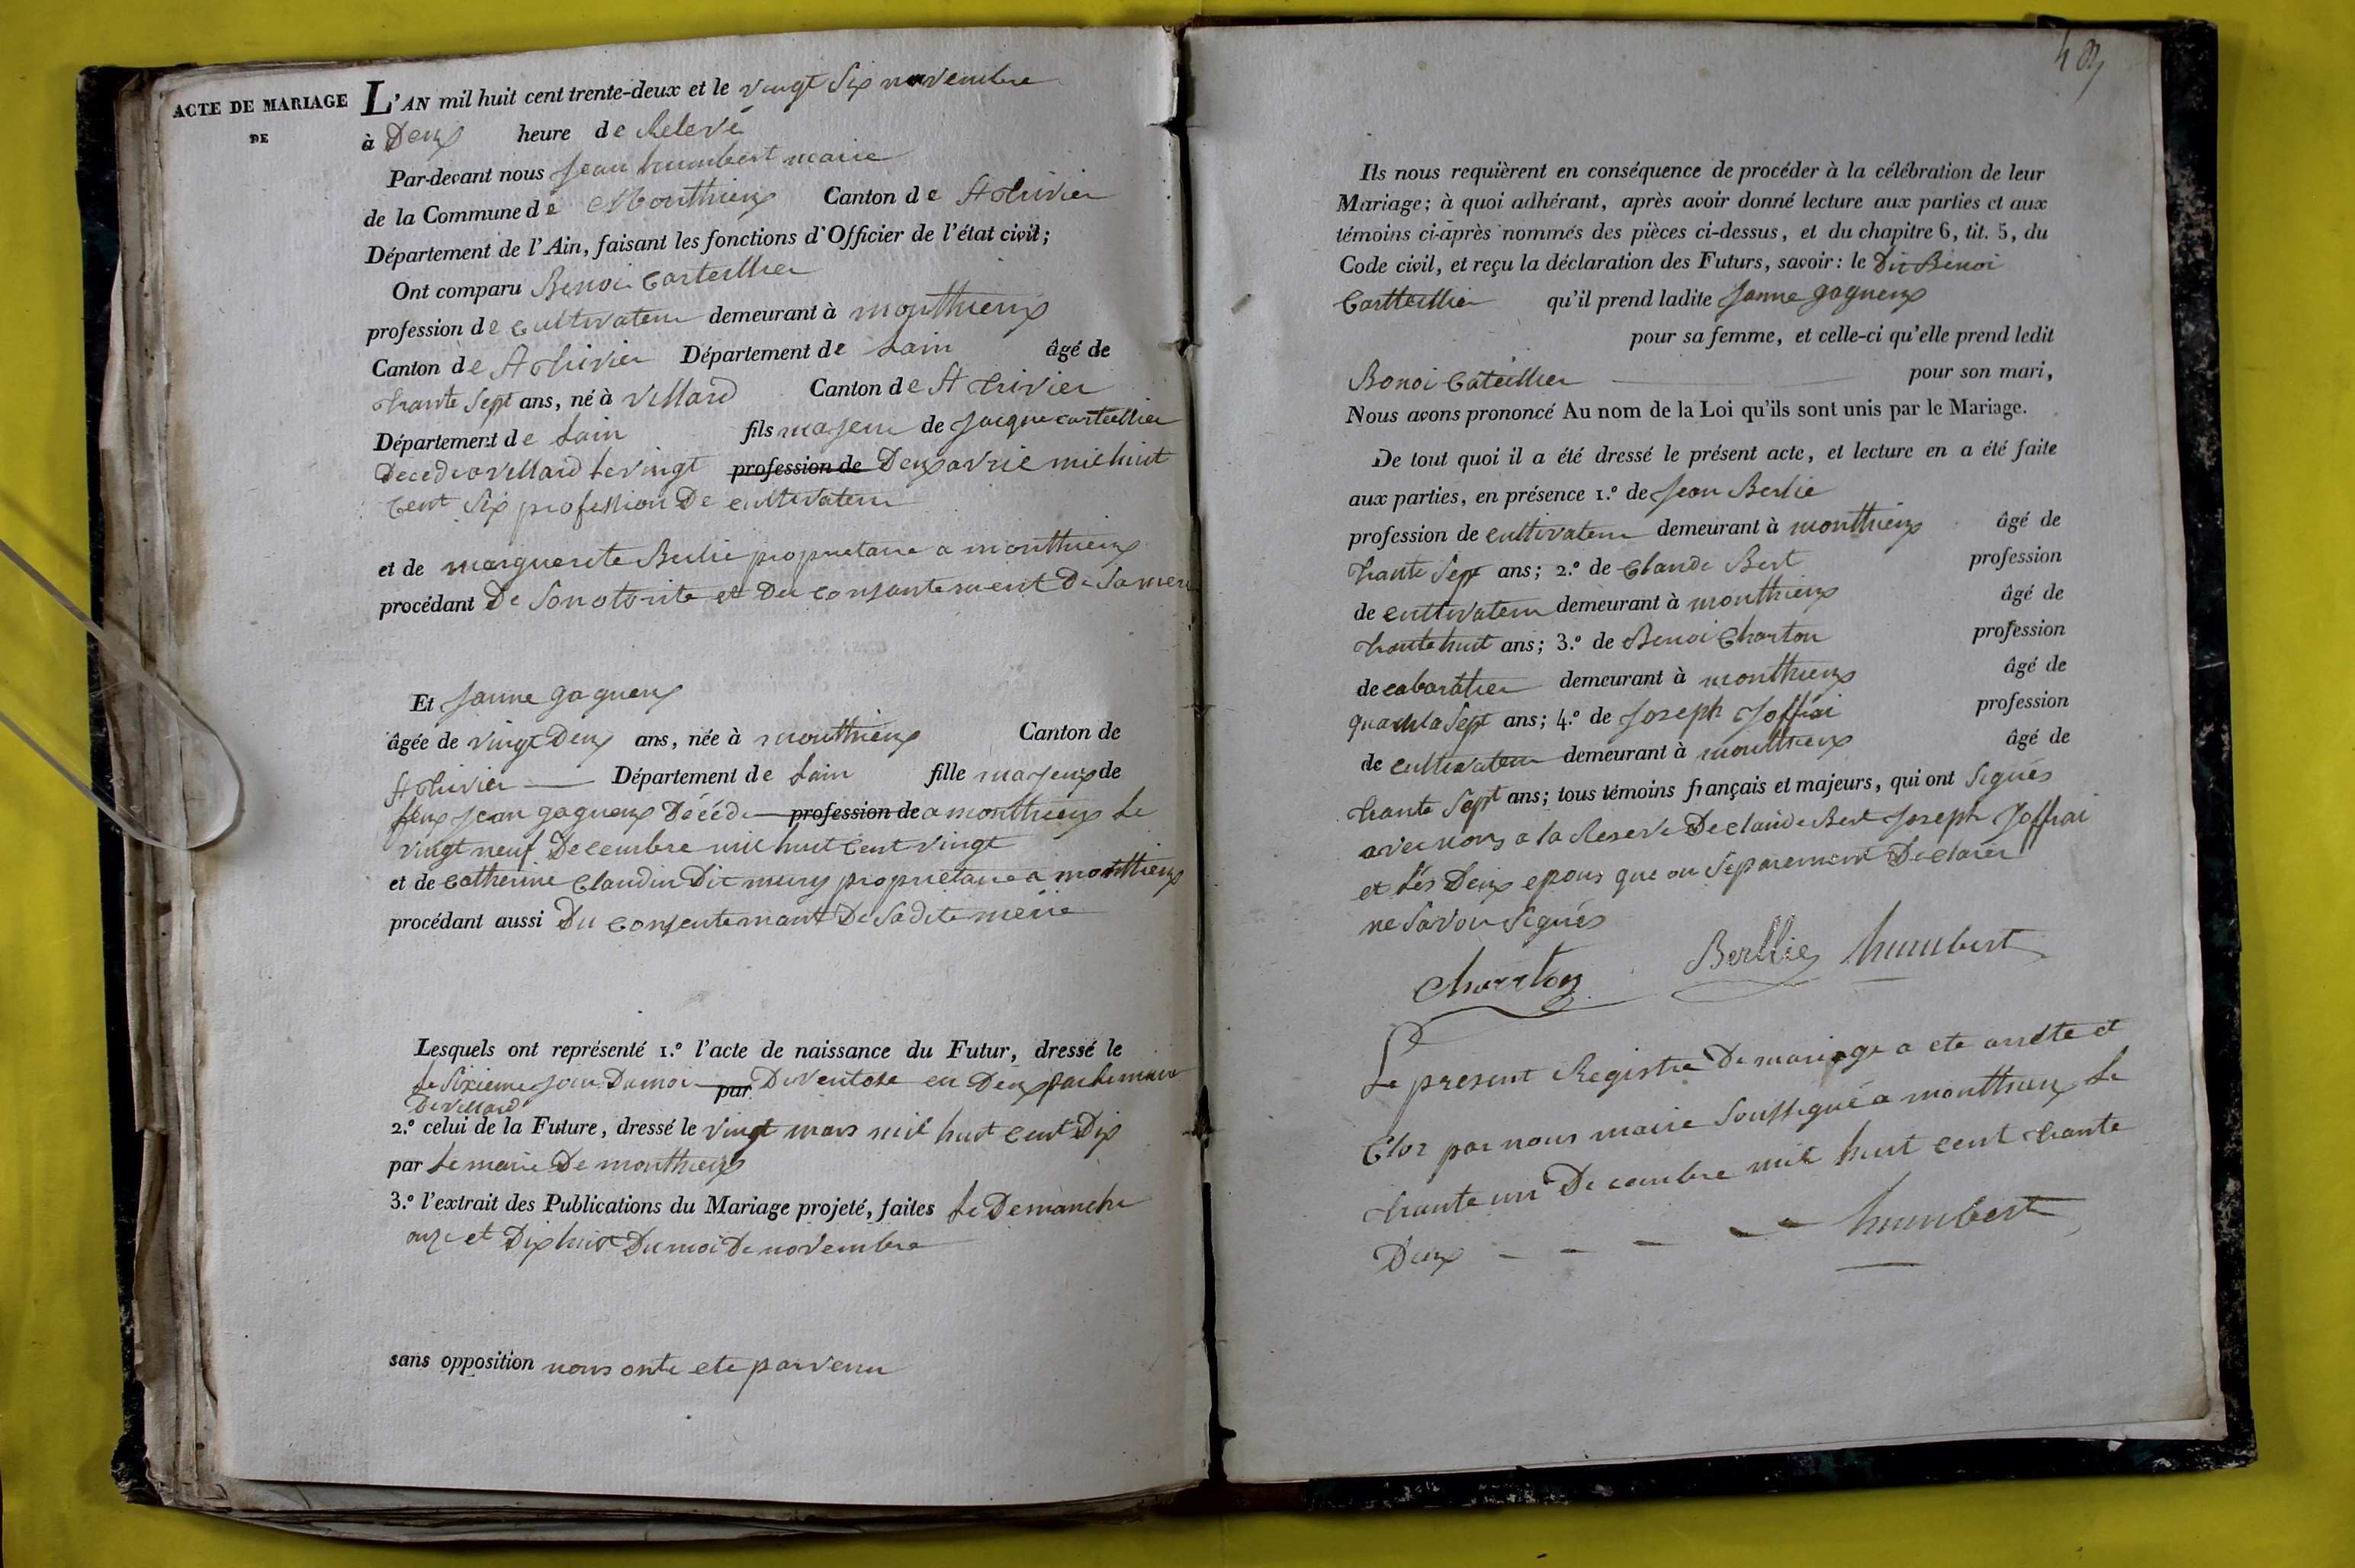 ACTE DE MARIAGE
DE
L'AN mil huit cent trente-deux et le vingt Six novembre
à Deux heure de Relevé
Par-devant nous Jean humbert maire
de la Commune de Monthieux Canton de St trivier
Département de l'Ain, faisant les fonctions d'Officier de l'état civil;
Ont comparu Benoi Carteillier
profession de cultivateur demeurant à monthieux
Canton de St trivier Département de Lain âgé de
trante Sept ans, né à villard Canton de St trivier
Département de Lain fils majeur de Jacque carteillier
Decedé a villard le vingt profession de Deux avril mil huit
Cent Six profession De cultivateur
et de marguerite Berlie propriétaire a monthieux
procédant De Son otorité et Du consantement De Sa mere
Et Janne gagneux
âgée de vingt Deux ans, née à monthieux Canton de
St trivier Département de Lain fille majeux de
feux Jean gagneux Décédé profession de a monthieux Le
vingt neuf Decembre mil huit Cent vingt
et de Catherine Claudin Dit mury propriétaire a monthieux
procédant aussi Du consentemant De Sadite mère
Lesquels ont représenté 1.º l'acte de naissance du Futur, dressé le
Le Sixieme Jour Du moi par De ventose en Deux par Le maire
De villard
2.º celui de la Future, dressé le vingt mars mil huit Cent Dix
par Le maire De monthieux
3.º l'extrait des Publications du Mariage projeté, faites Le Demanche
onze et Dix huit Du moi De novembre
sans opposition nous onte ete parvenu
409
Ils nous requièrent en conséquence de procéder à la célébration de leur
Mariage; à quoi adhérant, après avoir donné lecture aux parties et aux
témoins ci-après nommés des pièces ci-dessus, et du chapitre 6, tit. 5, du
Code civil, et reçu la déclaration des Futurs, savoir: le Dit Benoi
Cartteillier qu'il prend ladite Janne gagneux
pour sa femme, et celle-ci qu'elle prend ledit
Bonoi Cateillier pour son mari,
Nous avons prononcé Au nom de la Loi qu'ils sont unis par le Mariage.
De tout quoi il a été dressé le présent acte, et lecture en a été faite
aux parties, en présence 1.º de Jean Berlie
profession de cultivateur demeurant à monthieux âgé de
trante Sept ans; 2.º de Claude Bert profession
de cultivateur demeurant à monthieux âgé de
trante huit ans; 3.º de Benoi Charton profession
de cabaratier demeurant à monthieux âgé de
Sept ans; 4.º de Joseph Joffrai profession
de cultivateur demeurant à monthieux âgé de
trante Sept ans; tous témoins français et majeurs, qui ont Signés
avec nous a la Reserve De claude Bert Joseph Joffrai
et Les Deux epous que on Séparement Déclarér
ne Savoir Signés
Charrton Berllie humbert
Le present Registre De mariage a ete arrêté et
Clos par nous maire Soussigné a monthieux Le
trante un Decembre mil huit cent trante
Deux - - - - humbert